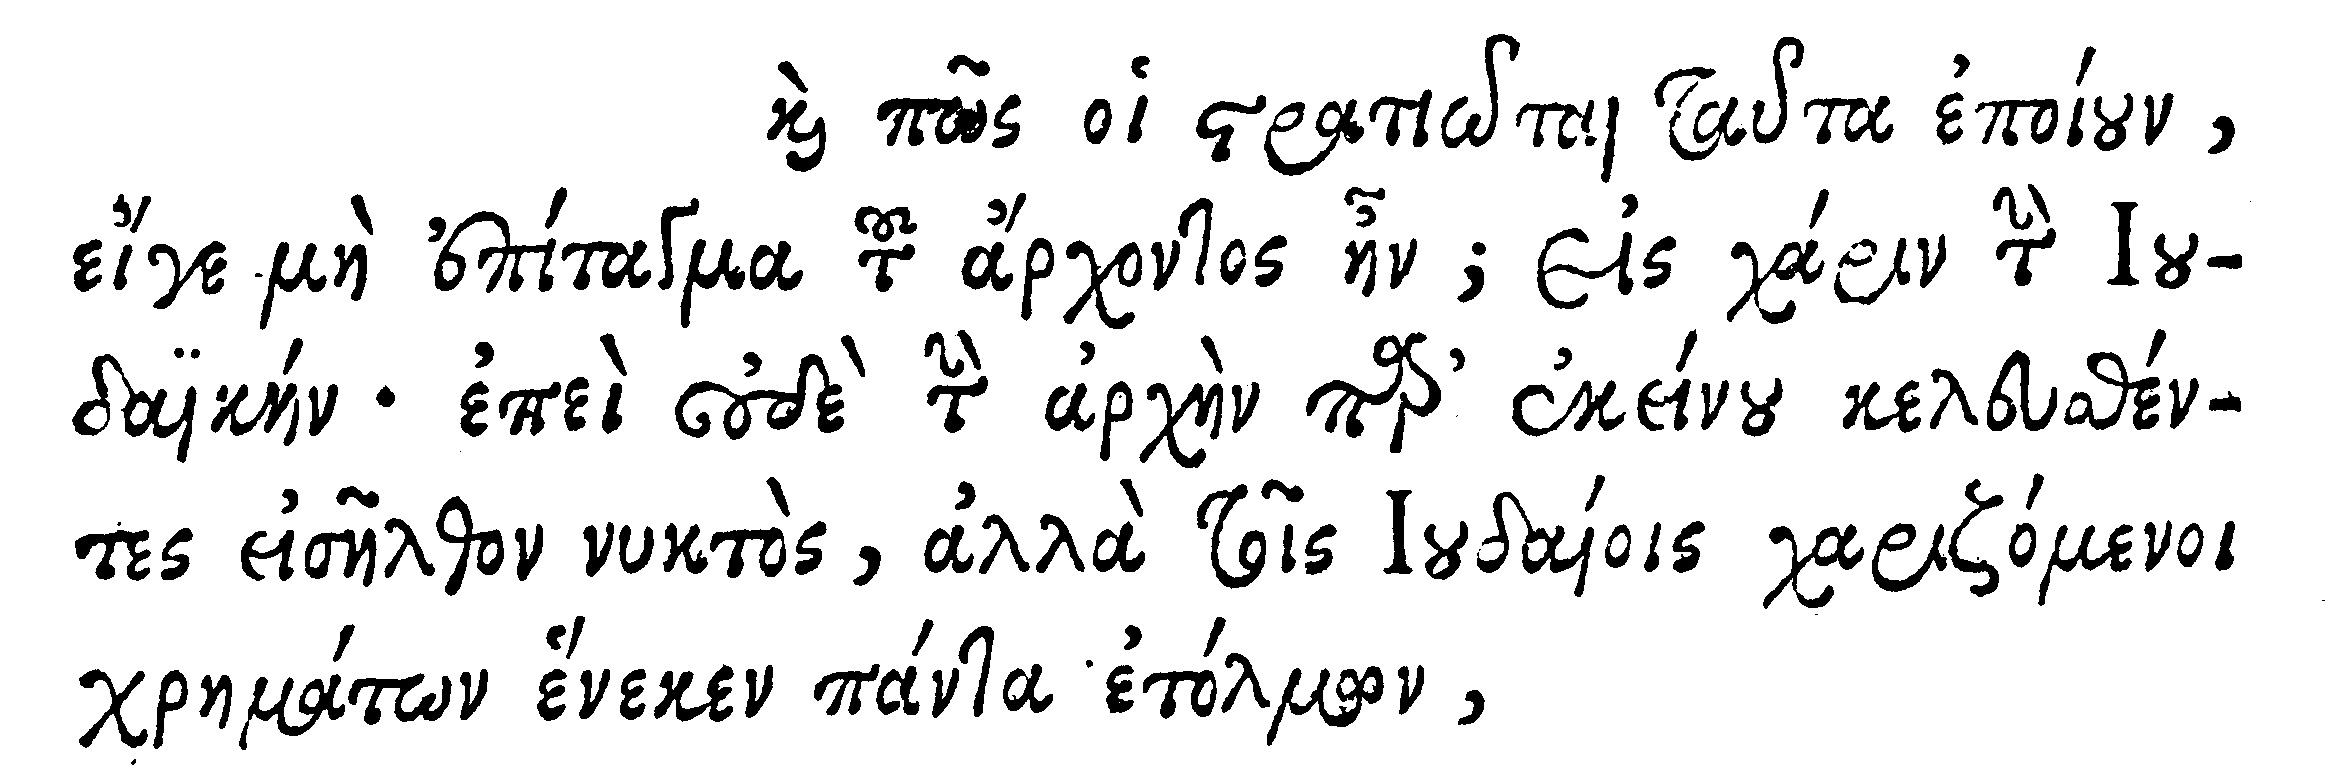 καὶ πῶς οἱ στρατιῶται ταῦτα ἐποίουν,
εἴγε μὴ ἐπίταγμα τοῦ ἄρχοντος ἦν; εἰς χάριν τὴν Ἰου-
δαϊκήν· ἐπεὶ οὐδὲ τὴν ἀρχὴν παρ’ ἐκείνου κελευσθέν-
τες εἰσῆλθον νυκτὸς, ἀλλὰ τοῖς Ἰουδαίοις χαριζόμενοι
χρημάτων ἕνεκεν πάντα ἐτόλμων,